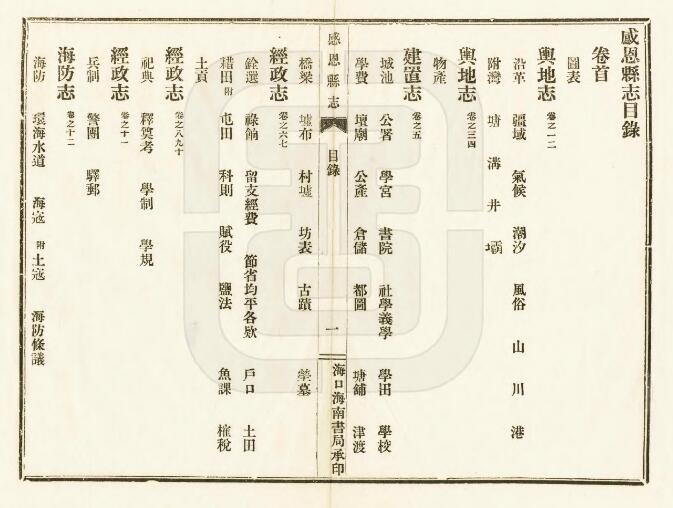 感恩縣志目錄
卷首
圖表
輿地志 卷之一二
沿革 疆域 氣候 潮汐 風俗 山 川 港
附灣 塘 溝 井 壩
輿地志 卷之三四
物產
建置志 卷之五
城池 公署 學宮 書院 社學義學 學田 學校
學費 壇廟 公產 倉儲 都圖 塘鋪 津渡
感恩縣志 目錄 一 海口海南書局承印
橋梁 墟布 村墟 坊表 古蹟 塋墓
經政志 卷之六七
銓選 祿餉 留支經費 節省均平各欵 戶口 土田
耤田 附 屯田 科則 賦役 鹽法 魚課 榷稅
土貢
經政志 卷之八九十
祀典 釋奠考 學制 學規
經政志 卷之十一
兵制 警團 驛郵
海防志 卷之十二
海防 環海水道 海寇 附 土寇 海防條議